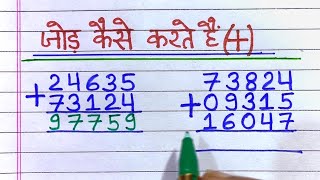 जोड़ कैसे करते हैं (+)
24635
+ 73124
97759
73824
+ 09315
16047